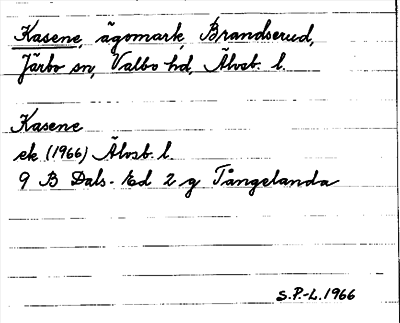 Kasene, ägomark, Brandserud,
Järbo sn, Valbo hd, Älvsb. l.
Kasene
ek (1966) Älvsb. l.
9 B Dals-Ed 2 g Tångelanda
S.P.-L. 1966